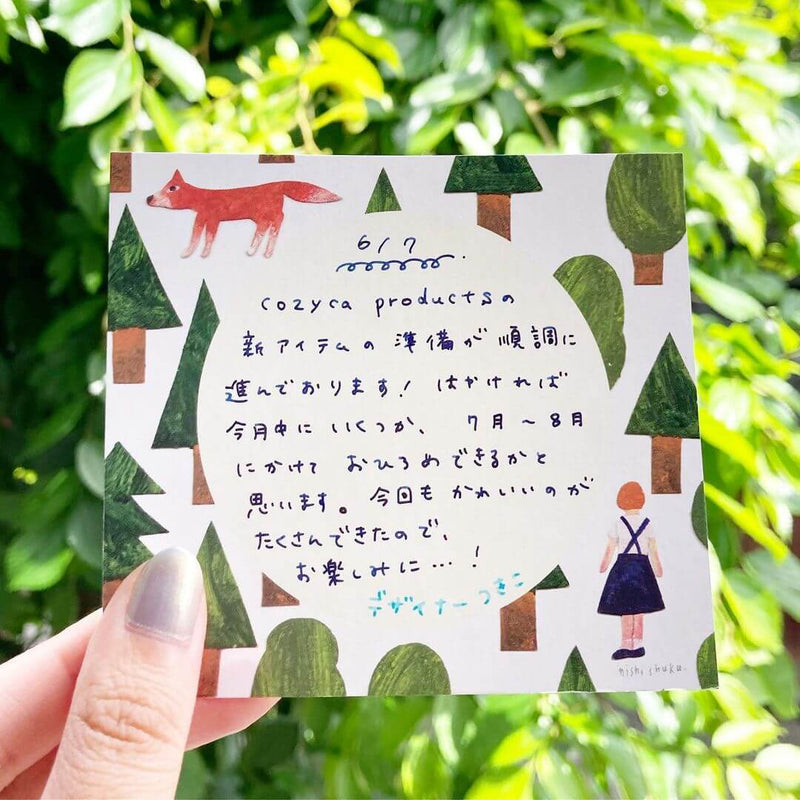 6/7.
cozyca productsの
新アイテムの準備が順調に
進んでおります! はやければ
今月中にいくつか、7月〜8月
にかけて おひろめできるかと
思います。今回も かわいいのが
たくさんできたので、
お楽しみに…!
デザイナーつきこ
nishi shuku.